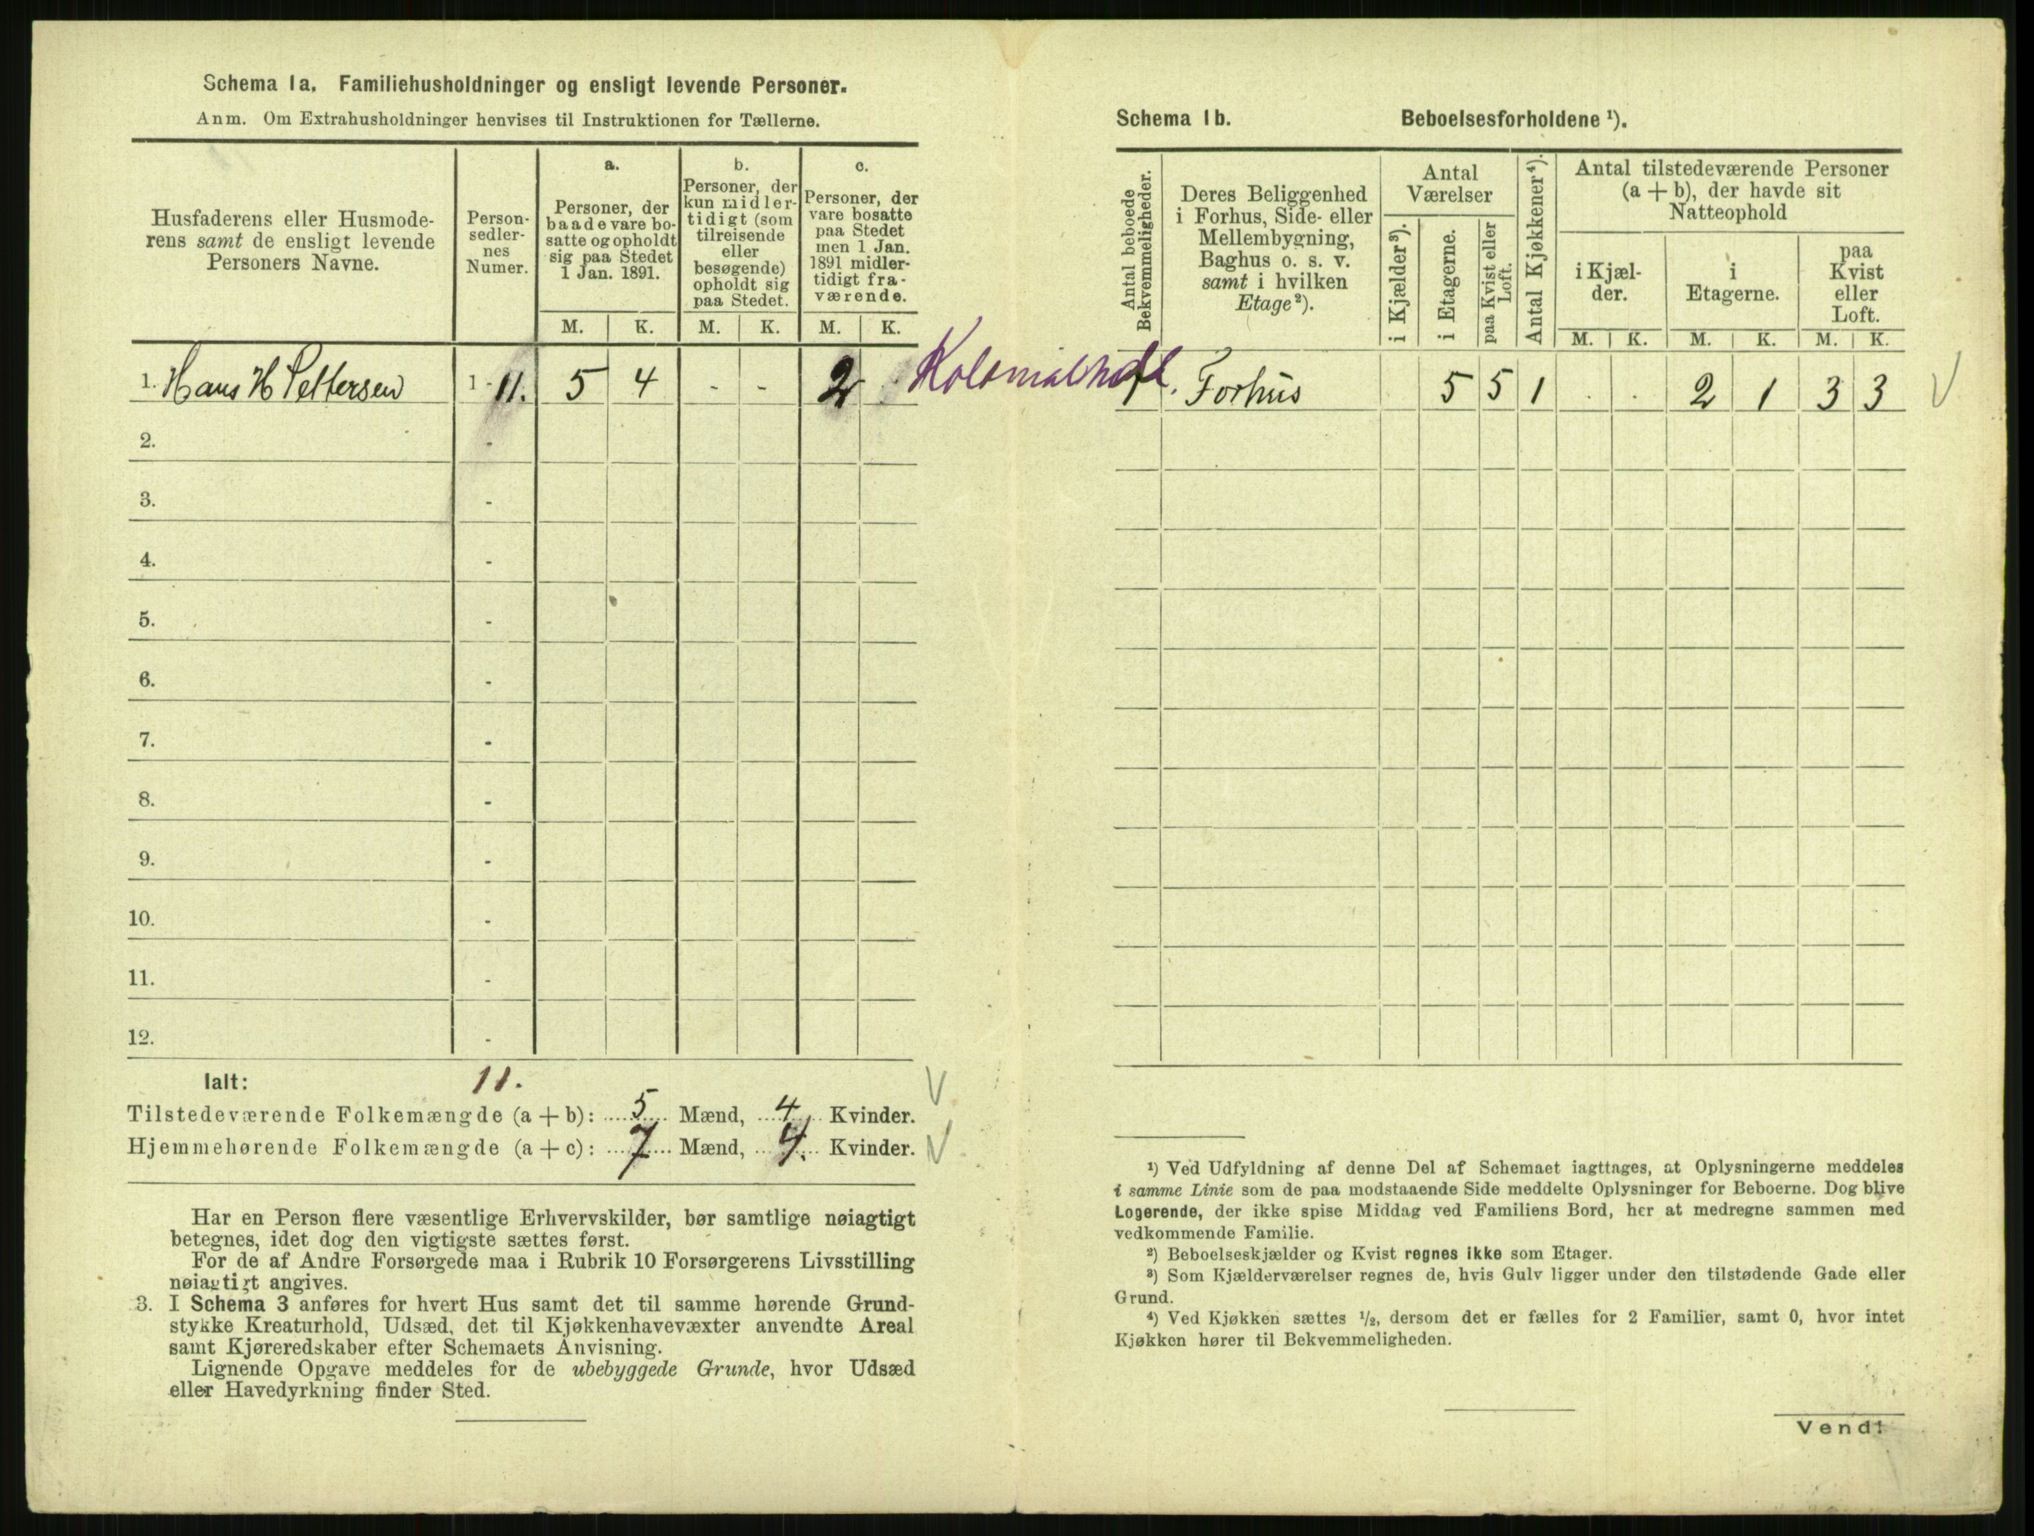 Schema 1a. Familiehusholdninger og ensligt levende Personer.
Anm. Om Extrahusholdninger henvises til Instruktionen for Tællerne.
Husfaderens eller Husmode-
rens samt de ensligt levende
Personers Navne.
Person-
sedler-
nes
Numer.
a.
Personer, der
baade vare bo-
satte og opholdt
sig paa Stedet
1 Jan. 1891.
b.
Personer, der
kun midler-
tidigt (som
tilreisende
eller
besøgende)
opholdt sig
paa Stedet.
c.
Personer, der
vare bosatte
paa Stedet
men 1 Jan.
1891 midler-
tidigt fra-
værende.
M. K. M. K. M. K.
1. Hans H Pettersen 1 - 11. 5 4 - - 2
2. -
3. -
4. -
5. -
6. -
7. -
8. -
9. -
10. -
11. -
12. -
Ialt: 11.
Tilstedeværende Folkemængde (a + b): 5 Mænd, 4 Kvinder.
Hjemmehørende Folkemængde (a + c): 7 Mænd, 4. Kvinder.
Har en Person flere væsentlige Erhvervskilder, bør samtlige nøiagtigt
betegnes, idet dog den vigtigste sættes først.
For de af Andre Forsørgede maa i Rubrik 10 Forsørgerens Livsstilling
nøiagtigt angives.
3. I Schema 3 anføres for hvert Hus samt det til samme hørende Grund-
stykke Kreaturhold, Udsæd, det til Kjøkkenhavevæxter anvendte Areal
samt Kjøreredskaber efter Schemaets Anvisning.
Lignende Opgave meddeles for de ubebyggede Grunde, hvor Udsæd
eller Havedyrkning finder Sted.
Schema 1b. Beboelsesforholdene ¹).
Antal beboede
Bekvemmeligheder.
Deres Beliggenhed
i Forhus, Side- eller
Mellembygning,
Baghus o. s. v.
samt i hvilken
Etage²).
Antal
Værelser
i Kjælder³).
i Etagerne.
paa Kvist eller
Loft.
Antal Kjøkkener⁴).
Antal tilstedeværende Personer
(a + b), der havde sit
Natteophold
i Kjæl-
der.
i
Etagerne.
paa
Kvist
eller
Loft.
M. K. M. K. M. K.
. Forhus . 5 5 1 . . 2 1 3 3
¹) Ved Udfyldning af denne Del af Schemaet iagttages, at Oplysningerne meddeles
i samme Linie som de paa modstaaende Side meddelte Oplysninger for Beboerne. Dog blive
Logerende, der ikke spise Middag ved Familiens Bord, her at medregne sammen med
vedkommende Familie.
²) Beboelseskjælder og Kvist regnes ikke som Etager.
³) Som Kjælderværelser regnes de, hvis Gulv ligger under den tilstødende Gade eller
Grund.
⁴) Ved Kjøkken sættes ½, dersom det er fælles for 2 Familier, samt 0, hvor intet
Kjøkken hører til Bekvemmeligheden.
Vend!